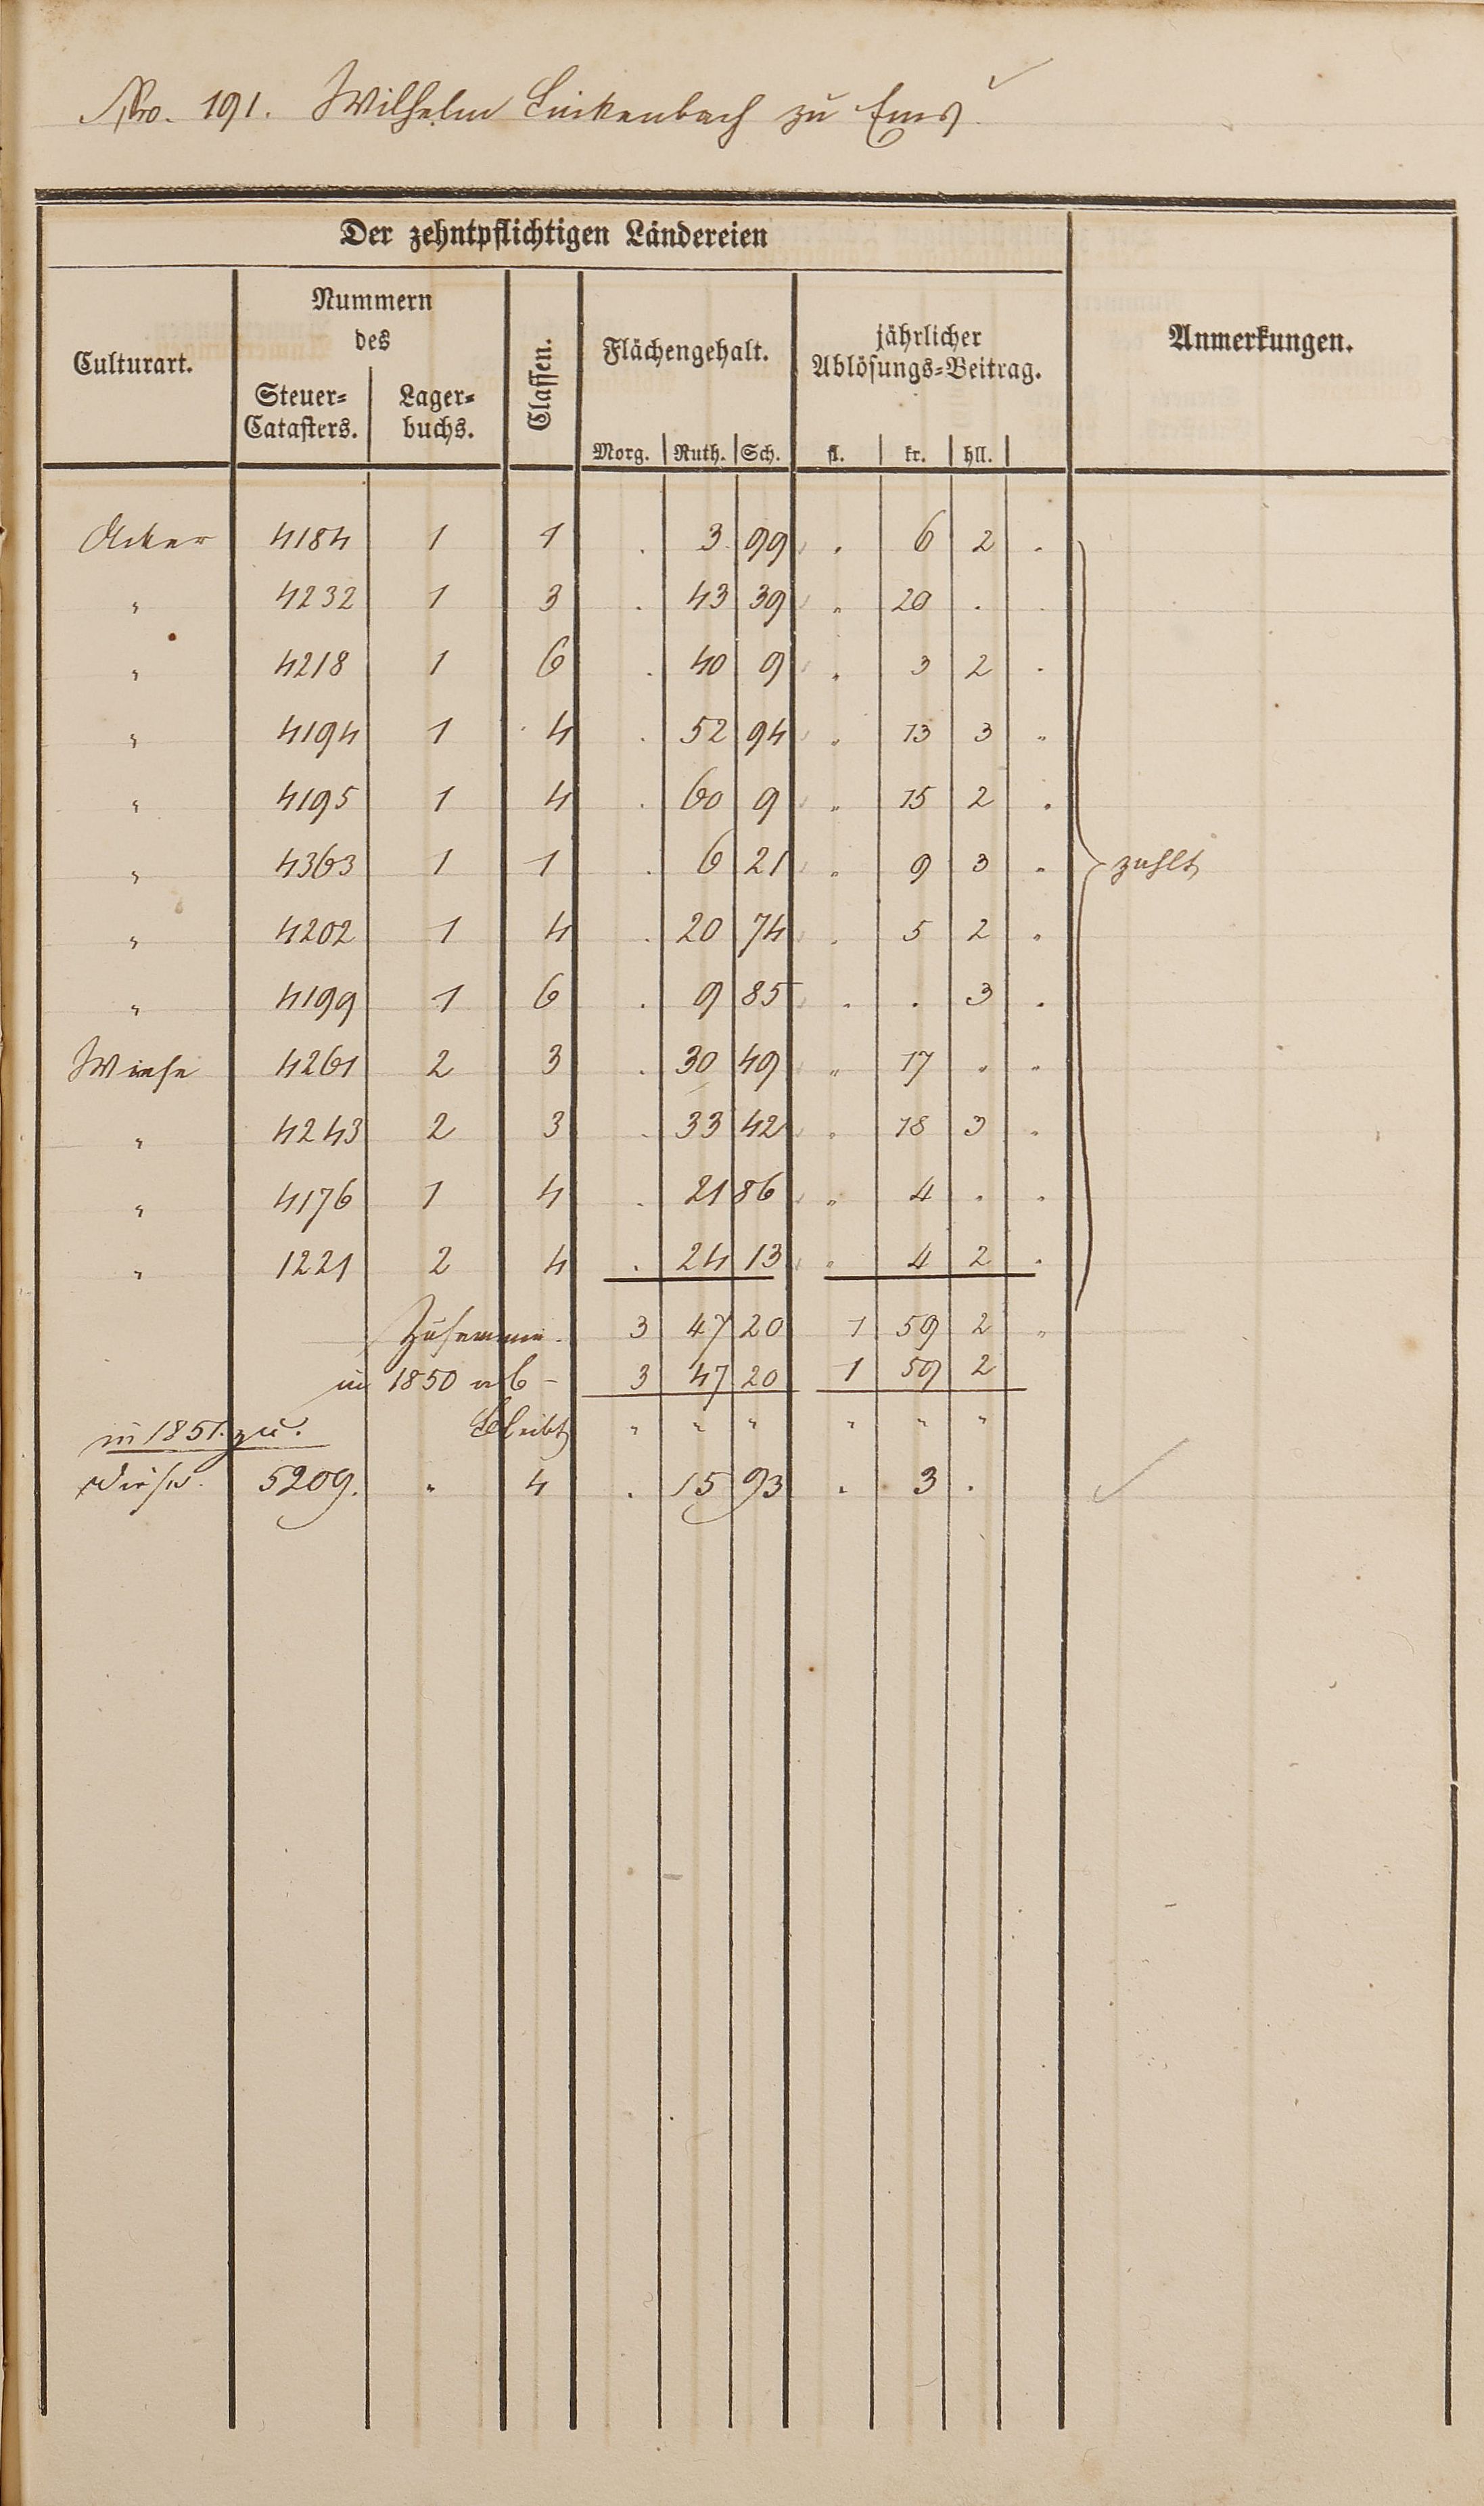 Nro. 191. Wilhelm Linkenbach zu Ems
Der zehntpflichtigen Ländereien
Culturart. Nummern des Steuer-Catasters. Lager-buchs. Classen. Flächengehalt. Morg. Ruth. Sch. jährlicher Ablösungs-Beitrag. fl. kr. hll. Anmerkungen.
Acker 4184 1 1 . 3 99 . 6 2 .
" 4232 1 3 . 43 39 " 20 . .
" 4218 1 6 . 40 9 " 3 2 .
" 4194 1 4 . 52 94 " 13 3 "
" 4195 1 4 . 60 9 " 15 2 .
" 4363 1 1 . 6 21 " 9 3 " zahlt
" 4202 1 4 . 20 74 . 5 2 "
" 4199 1 6 . 9 85 . . 3 .
Wiese 4261 2 3 . 30 49 " 17 " "
" 4243 2 3 . 33 42 " 18 3 "
" 4176 1 4 . 21 86 " 4 . .
" 1221 2 4 . 24 13 " 4 2 .
Zusammen. 3 47 20 1 59 2 "
in 1850 ab - 3 47 20 1 59 2
bleibt " " " " " "
in 1851. zu.
Wiese. 5209. " 4 . 15 93 . 3 .